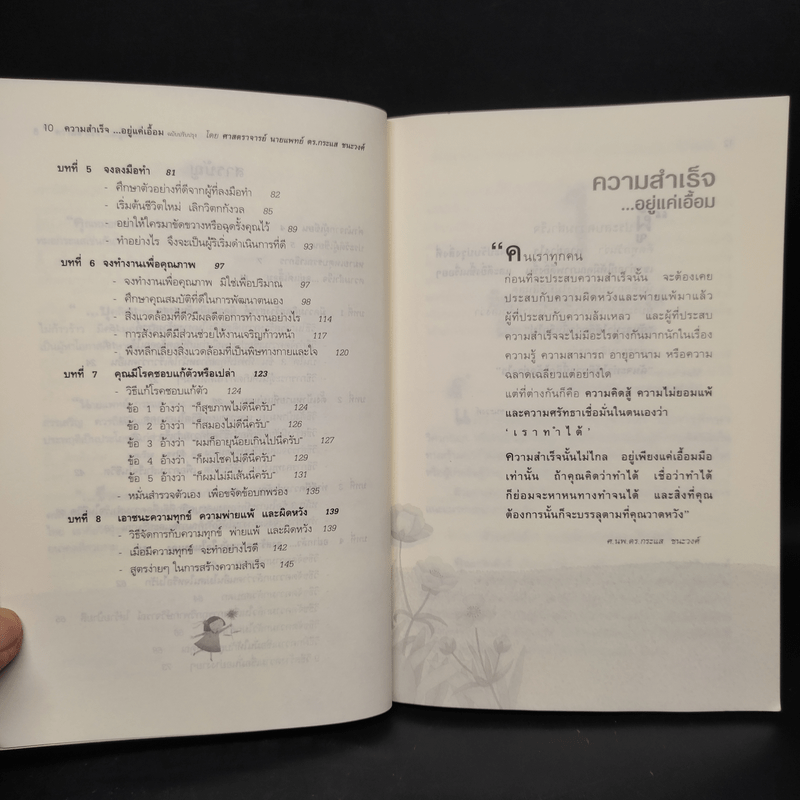 10 ความสำเร็จ ...อยู่แค่เอื้อม ฉบับปรับปรุง โดย ศาสตราจารย์ นายแพทย์ ดร.กระแส ชนะวงศ์
บทที่ 5 จงลงมือทำ 81
- ศึกษาตัวอย่างที่ดีจากผู้ที่ลงมือทำ 82
- เริ่มต้นชีวิตใหม่ เลิกวิตกกังวล 85
- อย่าให้ใครมาขัดขวางหรือฉุดรั้งคุณไว้ 89
- ทำอย่างไร จึงจะเป็นผู้ริเริ่มดำเนินการที่ดี 93
บทที่ 6 จงทำงานเพื่อคุณภาพ 97
- จงทำงานเพื่อคุณภาพ มิใช่เพื่อปริมาณ 97
- ศึกษาคุณสมบัติที่ดีในการพัฒนาตนเอง 98
- สิ่งแวดล้อมที่ดี?มีผลดีต่อการทำงานอย่างไร 114
- การสังคมดีมีส่วนช่วยให้งานเจริญก้าวหน้า 117
- พึงหลีกเลี่ยงสิ่งแวดล้อมที่เป็นพิษทางกายและใจ 120
บทที่ 7 คุณมีโรคชอบแก้ตัวหรือเปล่า 123
- วิธีแก้โรคชอบแก้ตัว 124
ข้อ 1 อ้างว่า "ก็สุขภาพไม่ดีนี่ครับ" 124
ข้อ 2 อ้างว่า "ก็สมองไม่ดีนี่ครับ" 126
ข้อ 3 อ้างว่า "ผมก็อายุน้อยเกินไปนี่ครับ" 127
ข้อ 4 อ้างว่า "ก็ผมโชคไม่ดีนี่ครับ" 129
ข้อ 5 อ้างว่า "ก็ผมไม่มีเส้นนี่ครับ" 131
- หมั่นสำรวจตัวเอง เพื่อขจัดข้อบกพร่อง 135
บทที่ 8 เอาชนะความทุกข์ ความพ่ายแพ้ และผิดหวัง 139
- วิธีจัดการกับความทุกข์ พ่ายแพ้ และผิดหวัง 139
- เมื่อมีความทุกข์ จะทำอย่างไรดี 142
- สูตรง่ายๆ ในการสร้างความสำเร็จ 145
ความสำเร็จ
...อยู่แค่เอื้อม
"คนเราทุกคน
ก่อนที่จะประสบความสำเร็จนั้น จะต้องเคย
ประสบกับความผิดหวังและพ่ายแพ้มาแล้ว
ผู้ที่ประสบกับความล้มเหลว และผู้ที่ประสบ
ความสำเร็จจะไม่มีอะไรต่างกันมากนักในเรื่อง
ความรู้ ความสามารถ อายุอานาม หรือความ
ฉลาดเฉลียวแต่อย่างใด
แต่ที่ต่างกันก็คือ ความคิดสู้ ความไม่ยอมแพ้
และความศรัทธาเชื่อมั่นในตนเองว่า
'เราทำได้'
ความสำเร็จนั้นไม่ไกล อยู่เพียงแค่เอื้อมมือ
เท่านั้น ถ้าคุณคิดว่าทำได้ เชื่อว่าทำได้
ก็ย่อมจะหาหนทางทำจนได้ และสิ่งที่คุณ
ต้องการนั้นก็จะบรรลุตามที่คุณวาดหวัง"
ศ.นพ.ดร.กระแส ชนะวงศ์